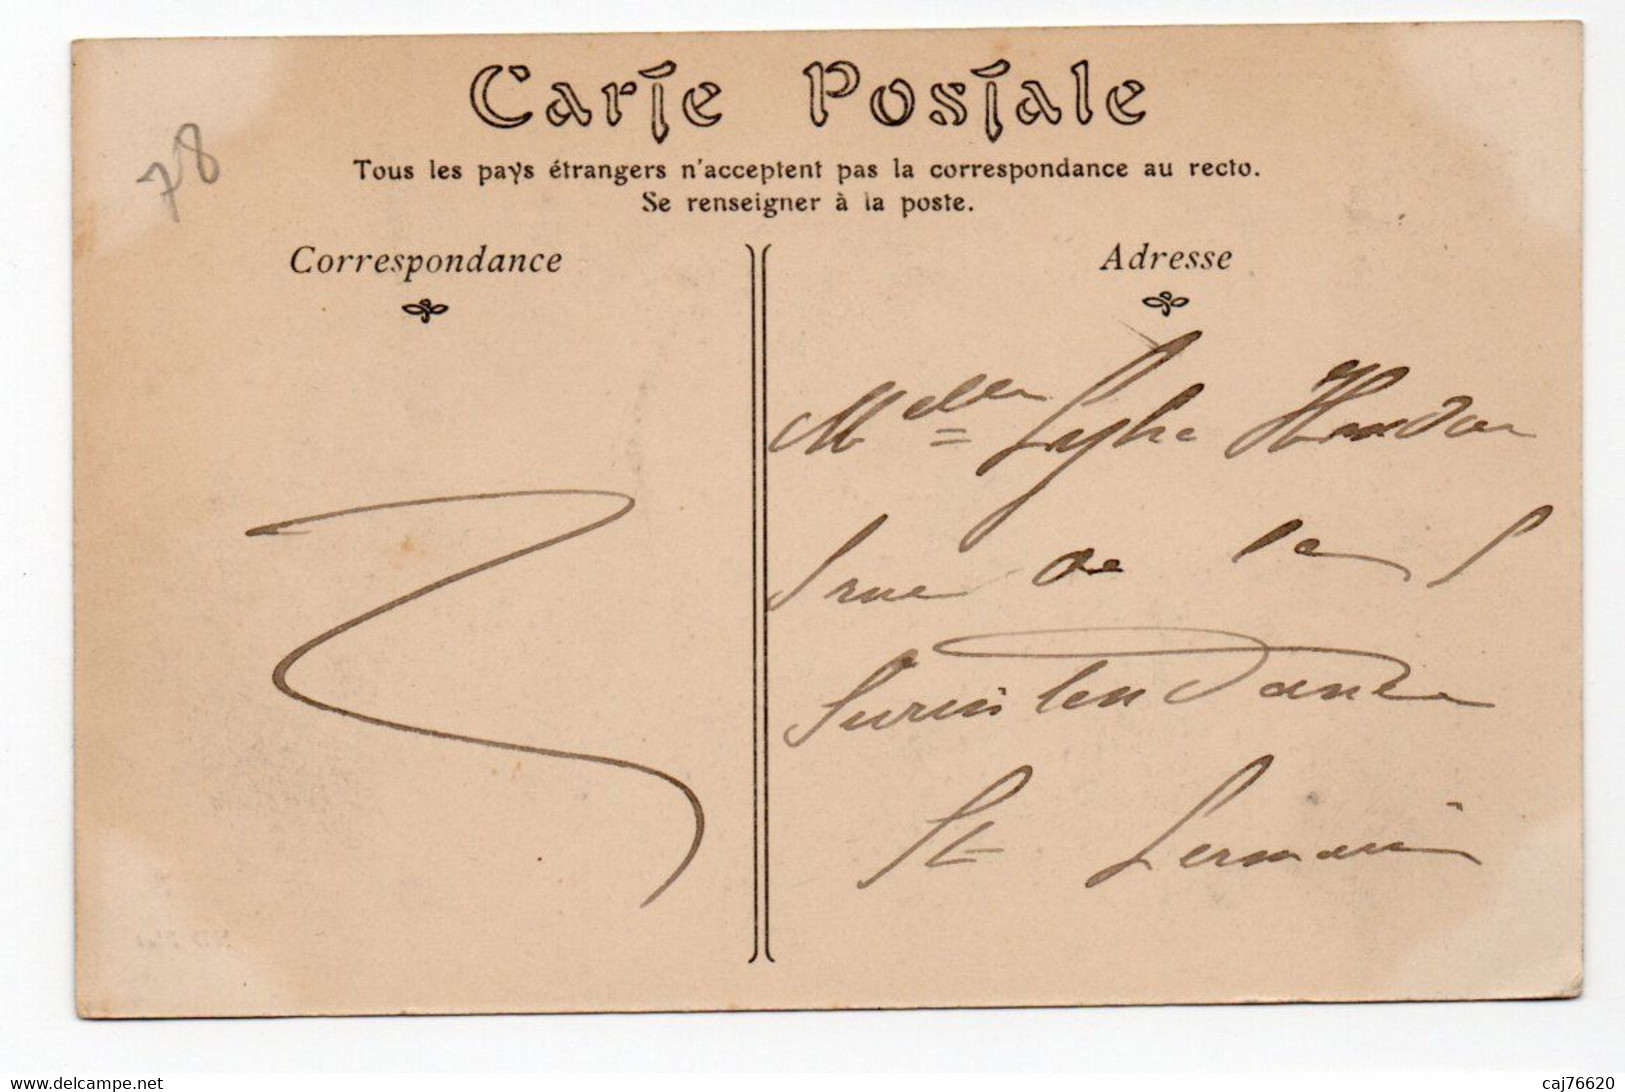 Carte Postale
78
Tous les pays étrangers n'acceptent pas la correspondance au recto.
Se renseigner à la poste.
Correspondance
Adresse
Melle
rue de la
Surintendance
St Germain
www.delcampe.net
caj76620